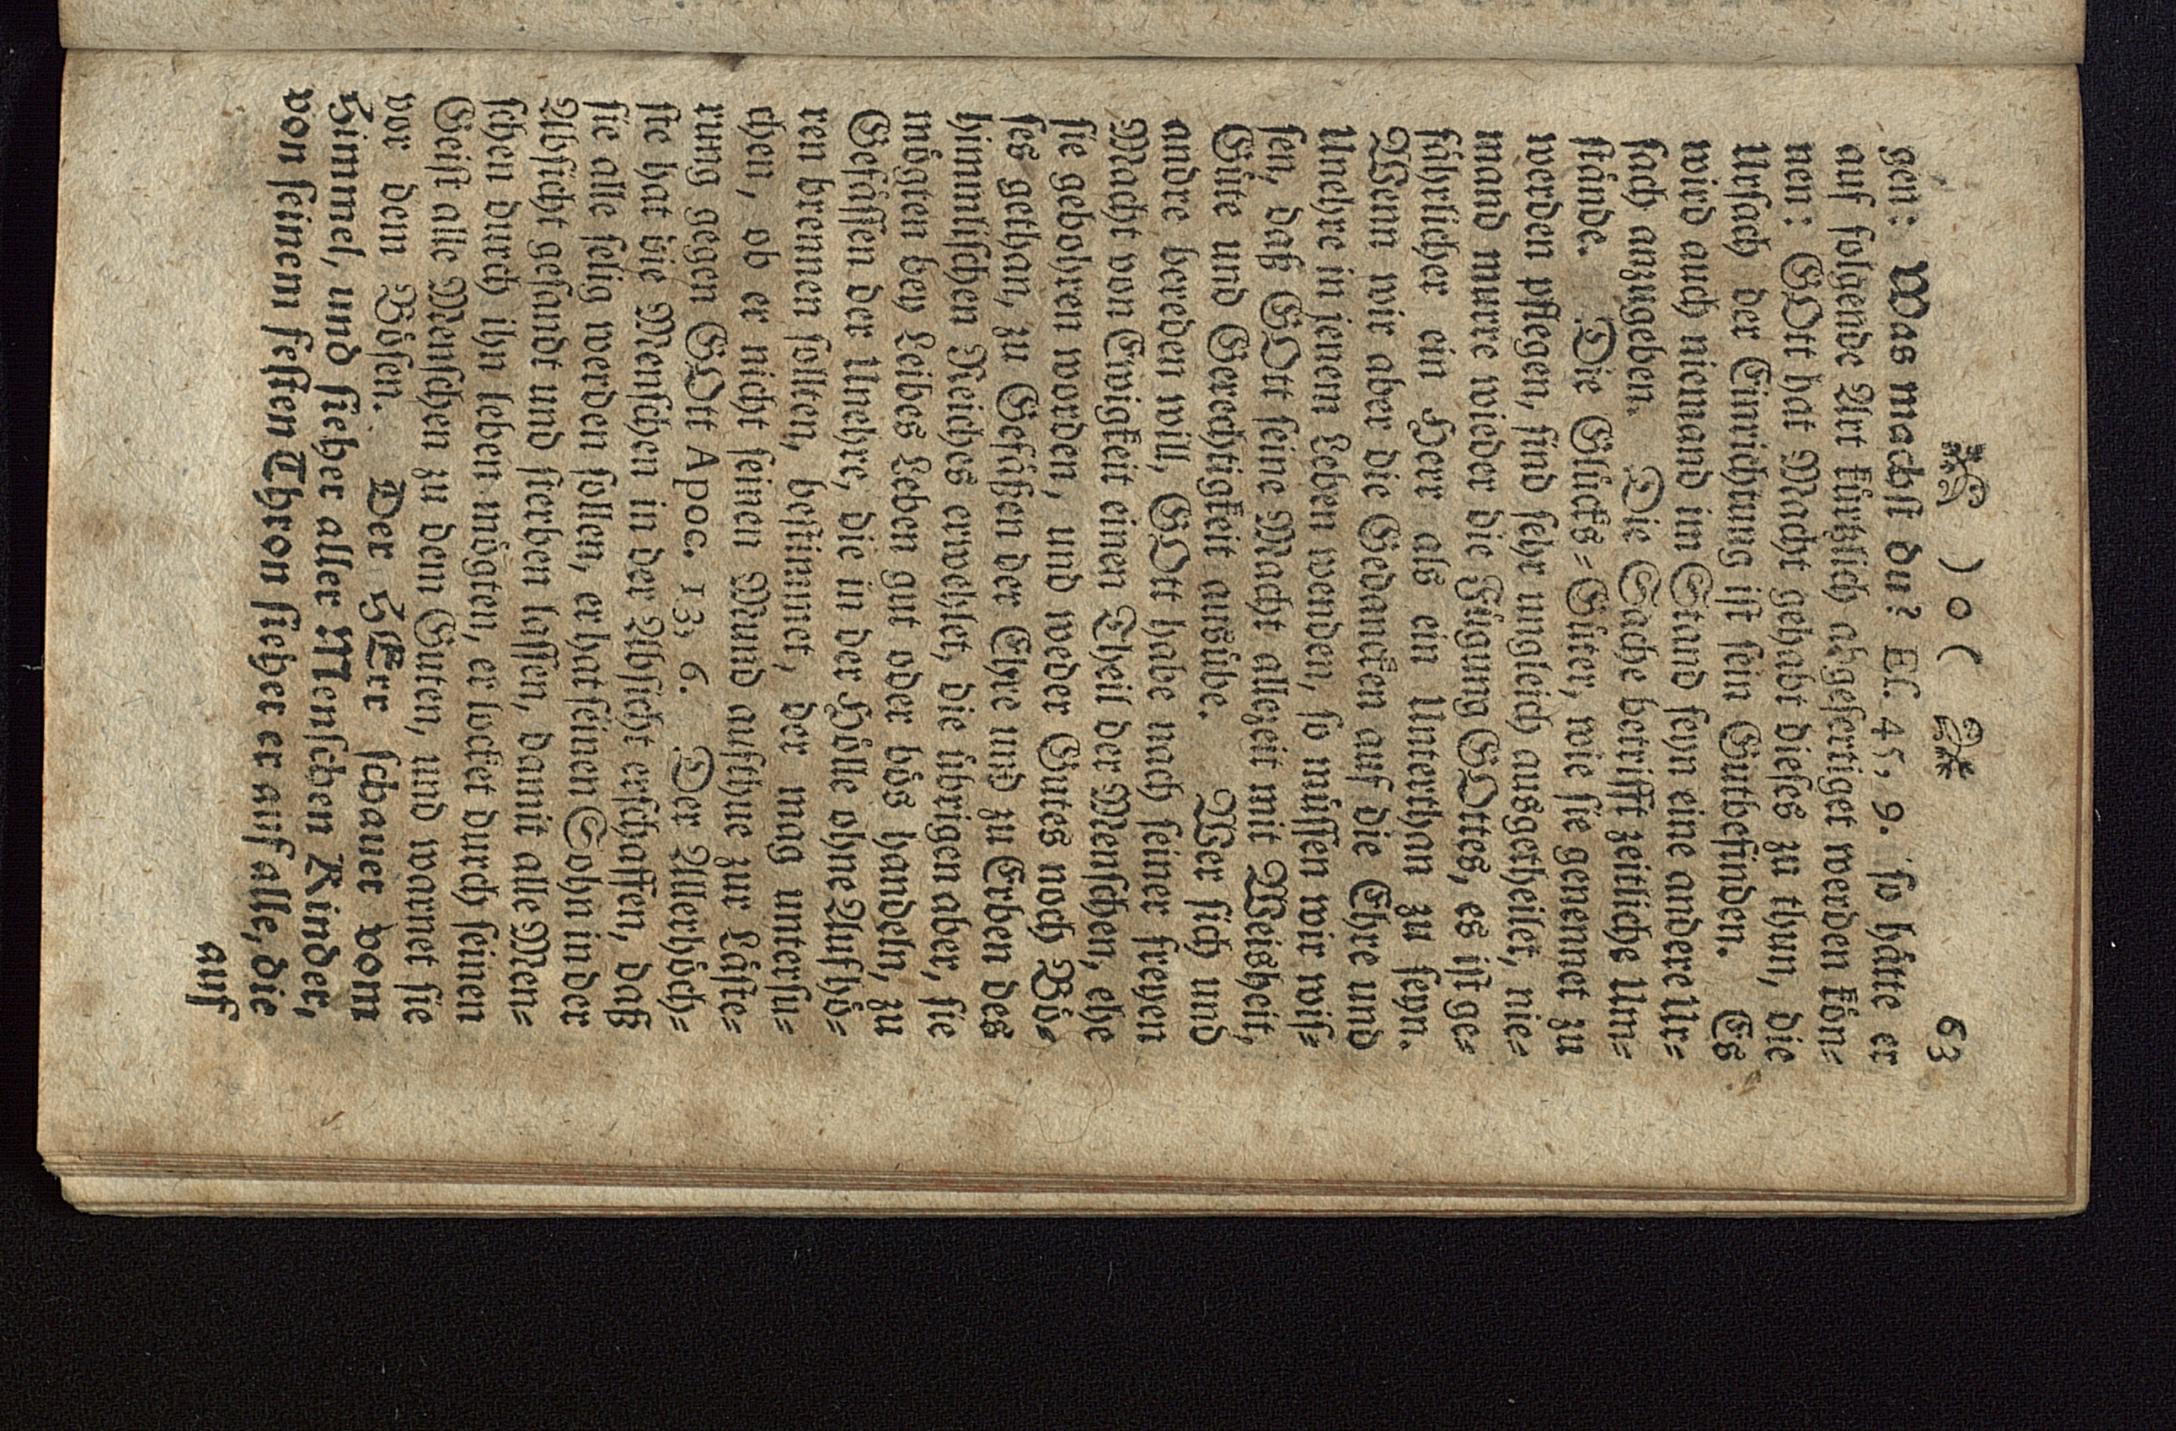 )o( 63
gen: Was machſt du? Eſ. 45, 9. ſo hätte er
auf ſolgende Art kürtzlich abgefertiget werden kön⸗
nen: GOtt hat Macht gehabt dieſes zu thun, die
Urſach der Einrichtung iſt ſein Gutbefinden. Es
wird auch niemand im Stand ſeyn eine andere Ur⸗
ſach anzugeben. Die Sache betrifft zeitliche Um⸗
ſtände. Die Glücks⸗Güter, wie ſie genennet zu
werden pflegen, ſind ſehr ungleich ausgetheilet, nie⸗
mand murre wieder die Fügung GOttes, es iſt ge⸗
fährlicher ein Herr als ein Unterthan zu ſeyn.
Wenn wir aber die Gedancken auf die Ehre und
Unehre in jenem Leben wenden, ſo müſſen wir wiſ⸗
ſen, daß GOtt ſeine Macht allezeit mit Weisheit,
Güte und Gerechtigkeit ausübe. Wer ſich und
andre bereden will, GOtt habe nach ſeiner freyen
Macht von Ewigkeit einen Theil der Menſchen, ehe
ſie gebohren worden, und weder Gutes noch Bö⸗
ſes gethan, zu Gefäßen der Ehre und zu Erben des
himmliſchen Reiches erwehlet, die übrigen aber, ſie
mögten bey Leibes Leben gut oder bös handeln, zu
Gefäſſen der Unehre, die in der Hölle ohne Aufhö⸗
ren brennen ſollten, beſtimmet, der mag unterſu⸗
chen, ob er nicht ſeinen Mund aufthue zur Läſte⸗
rung gegen GOtt Apoc. 13, 6. Der Allerhöch⸗
ſte hat die Menſchen in der Abſicht erſchaffen, daß
ſie alle ſelig werden ſollen, er hat ſeinen Sohn in der
Abſicht geſandt und ſterben laſſen, damit alle Men⸗
ſchen durch ihn leben mögten, er locket durch ſeinen
Geiſt alle Menſchen zu dem Guten, und warnet ſie
vor dem Böſen. Der HErr ſchauet vom
Himmel, und ſiehet aller Menſchen Kinder,
von ſeinem feſten Thron ſiehet er auf alle, die
auf